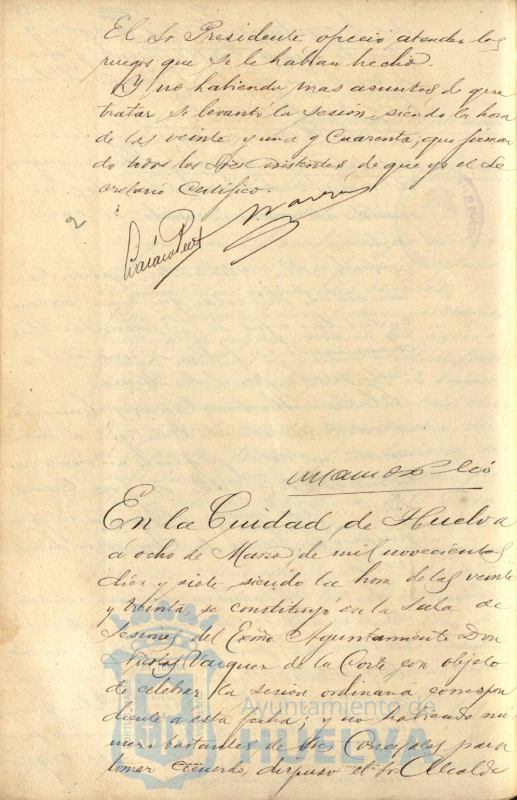 El Sr. Presidente ofreció atender los
ruegos que se le habían hecho.
Y no habiendo mas asuntos de que
tratar se levantó la sesión, siendo la hora
de las veinte y una y Cuarenta, que firman
do todos los Sres asistentes de que yo el Se
cretario Certifico.
2
En la Ciudad de Huelva
á ocho de Marzo, de mil novecientos
diez y siete, siendo la hora de las veinte
y treinta, se constituyó en la Sala de
Sesiones del Exmo Ayuntamiento Don
Nicolas Vazquez de la Corte con objeto
de celebrar la sesión ordinaria correspon
diente a esta fecha; y no habiendo nu
mero bastantes de Sres Concejales para
tomar acuerdo, dispuso el Sr. Alcalde
Ayuntamiento de
HUELVA